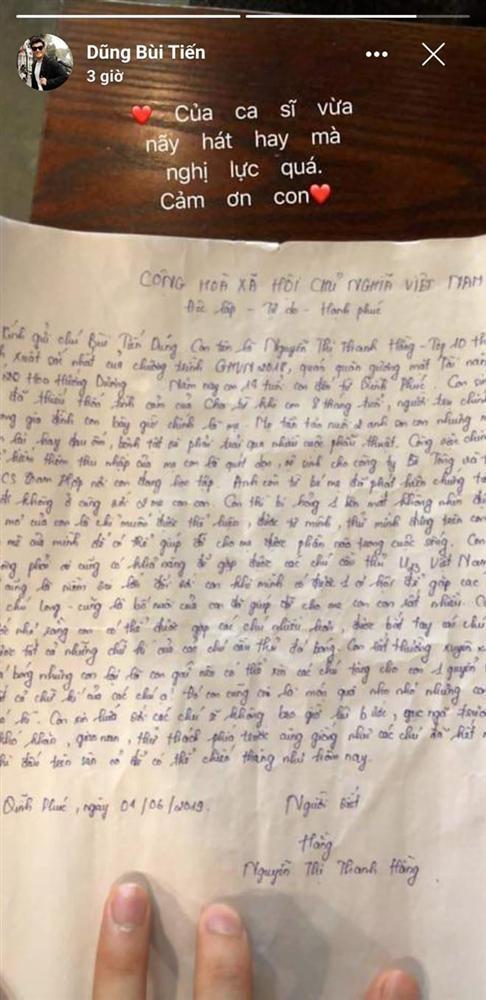 Dũng Bùi Tiến
3 giờ
Của ca sĩ vừa
nãy hát hay mà
nghị lực quá.
Cảm ơn con
CỘNG HOÀ XÃ HỘI CHỦ NGHĨA VIỆT NAM
Độc lập - Tự do - Hạnh phúc
gửi chú Bùi Tiến Dũng Con tên là Nguyễn Thị Thanh Hằng - Top 10
xuất sắc nhất của chương trình GMVN 2018, quán quân gương mặt Tài năng
Hoa Hướng Dương. Năm nay con 14 tuổi con đến từ Bình Phước. Con
đã thiếu thốn tình cảm của Cha từ khi con 8 tháng tuổi, người trụ chính
gia đình con bây giờ chính là mẹ. Mẹ tần tảo nuôi 2 anh em con nhưng
lại hay đau ốm, bệnh tật và phải trải qua nhiều cuộc phẫu thuật. Công việc chính
kiếm thêm thu nhập của mẹ con là quét dọn, vệ sinh cho công ty Bê Tông và
nơi con đang học tập. Anh con từ bé mẹ đã phát hiện chứng
không ở cùng với 2 mẹ con con. Con thì bị hỏng 1 bên mắt không nhìn
mơ của con là chỉ muốn được thử luôn, được tự mình, thử mình đứng trên
mẽ của mình để có thể giúp đỡ cho mẹ được phần nào trong cuộc sống. Con
phải ai cũng có khả năng để gặp được các chú cầu thủ U23 Việt Nam
cũng là niềm lớn đối với con khi mình có được 1 cơ hội để gặp các
chú Long - cũng là bố nuôi của con đã giúp đỡ cho mẹ con con rất nhiều.
con có thể được gặp các chú nhiều hơn, được bắt tay các chú
được tất cả những chữ kí của các chú cầu thủ đá bóng. Con rất thường xuyên
bóng nhưng con lại là con gái nên có thể xin các chú tặng cho con 1 quyển
có chữ kí của các chú ạ. Đó con cũng coi là món quà nho nhỏ nhưng
Con xin hứa với các chú sẽ không bao giờ lùi bước, gục ngã trước
khó khăn, gian nan, thử thách phía trước cũng giống như các chú đã hết
đấu trên sân cỏ để có thể chiến thắng như hôm nay.
Bình Phước, ngày 01/06/2019. Người viết
Hằng
Nguyễn Thị Thanh Hằng